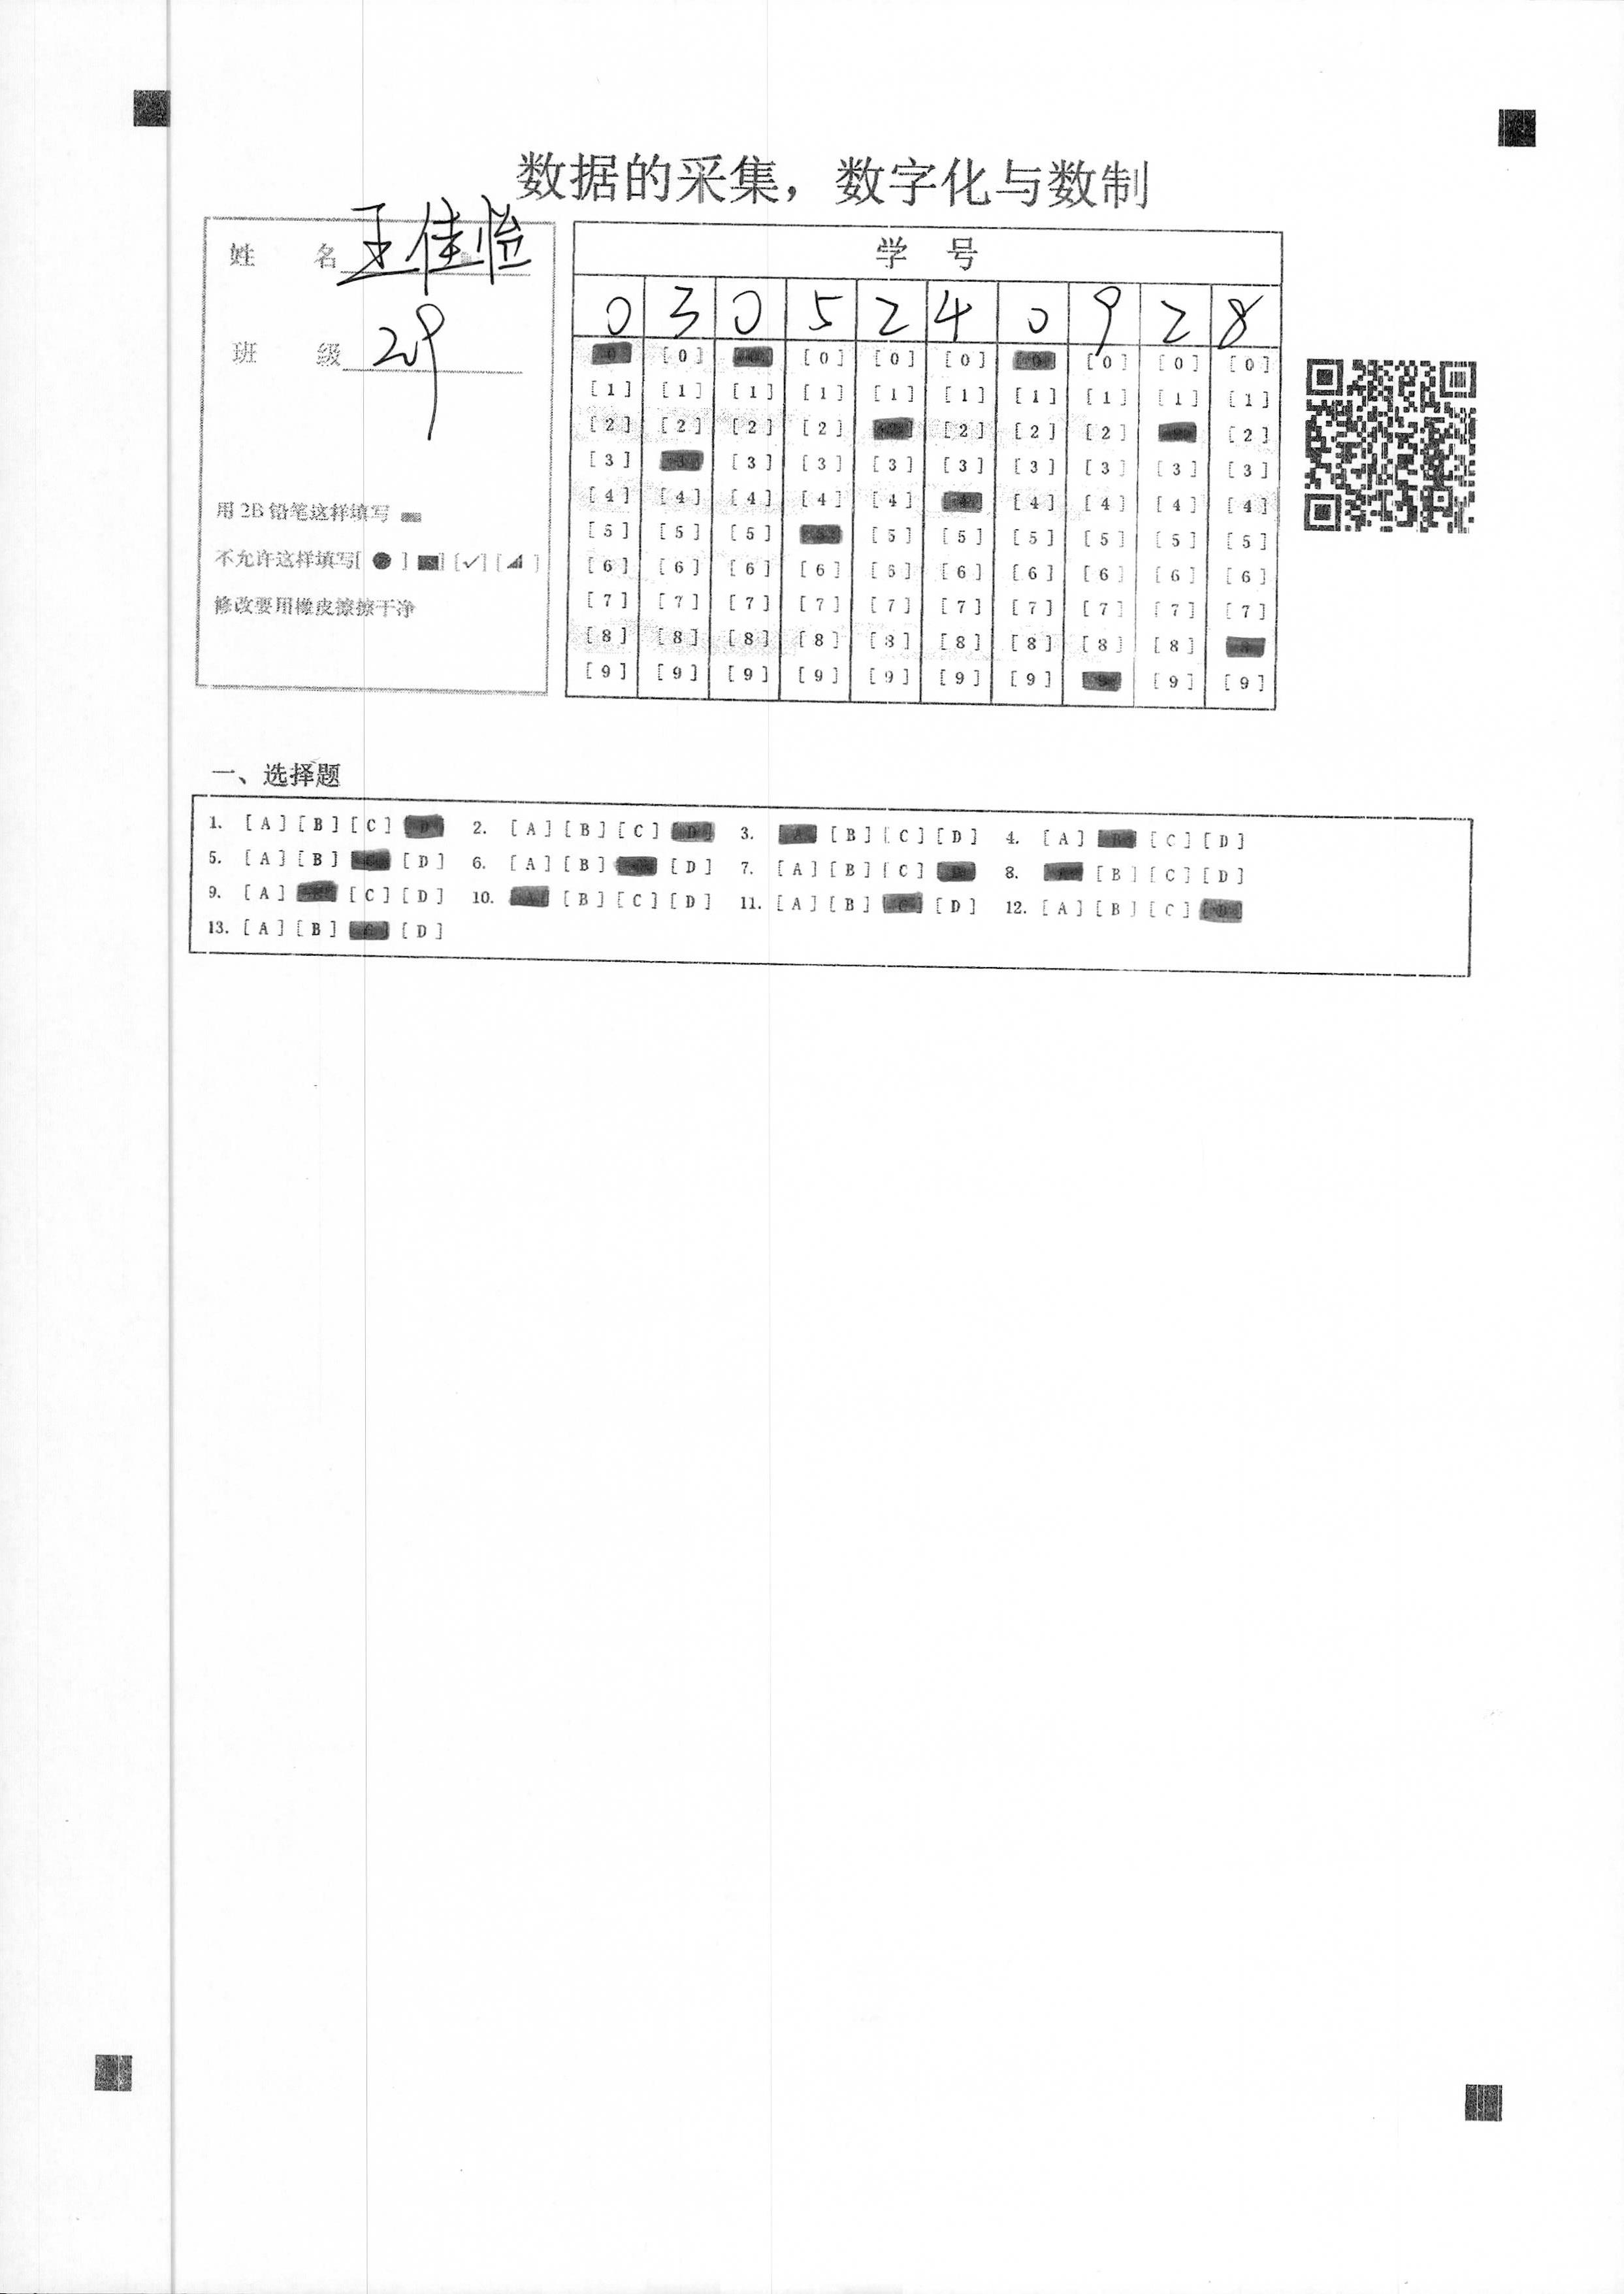 数据的采集，数字化与数制
姓 名 王佳怡
班 级 209
用 2B 铅笔这样填写
不允许这样填写[ ● ] [■] [✓] [◢ ]
修改要用橡皮擦擦干净
学 号
0 3 0 5 2 4 0 9 2 8
[0] [0] [0] [0] [0] [0] [0] [0] [0] [0]
[1] [1] [1] [1] [1] [1] [1] [1] [1] [1]
[2] [2] [2] [2] [2] [2] [2] [2] [2] [2]
[3] [3] [3] [3] [3] [3] [3] [3] [3] [3]
[4] [4] [4] [4] [4] [4] [4] [4] [4] [4]
[5] [5] [5] [5] [5] [5] [5] [5] [5] [5]
[6] [6] [6] [6] [6] [6] [6] [6] [6] [6]
[7] [7] [7] [7] [7] [7] [7] [7] [7] [7]
[8] [8] [8] [8] [8] [8] [8] [8] [8] [8]
[9] [9] [9] [9] [9] [9] [9] [9] [9] [9]
一、选择题
1. [A] [B] [C] [D] 2. [A] [B] [C] [D] 3. [A] [B] [C] [D] 4. [A] [B] [C] [D]
5. [A] [B] [C] [D] 6. [A] [B] [C] [D] 7. [A] [B] [C] [D] 8. [A] [B] [C] [D]
9. [A] [B] [C] [D] 10. [A] [B] [C] [D] 11. [A] [B] [C] [D] 12. [A] [B] [C] [D]
13. [A] [B] [C] [D]